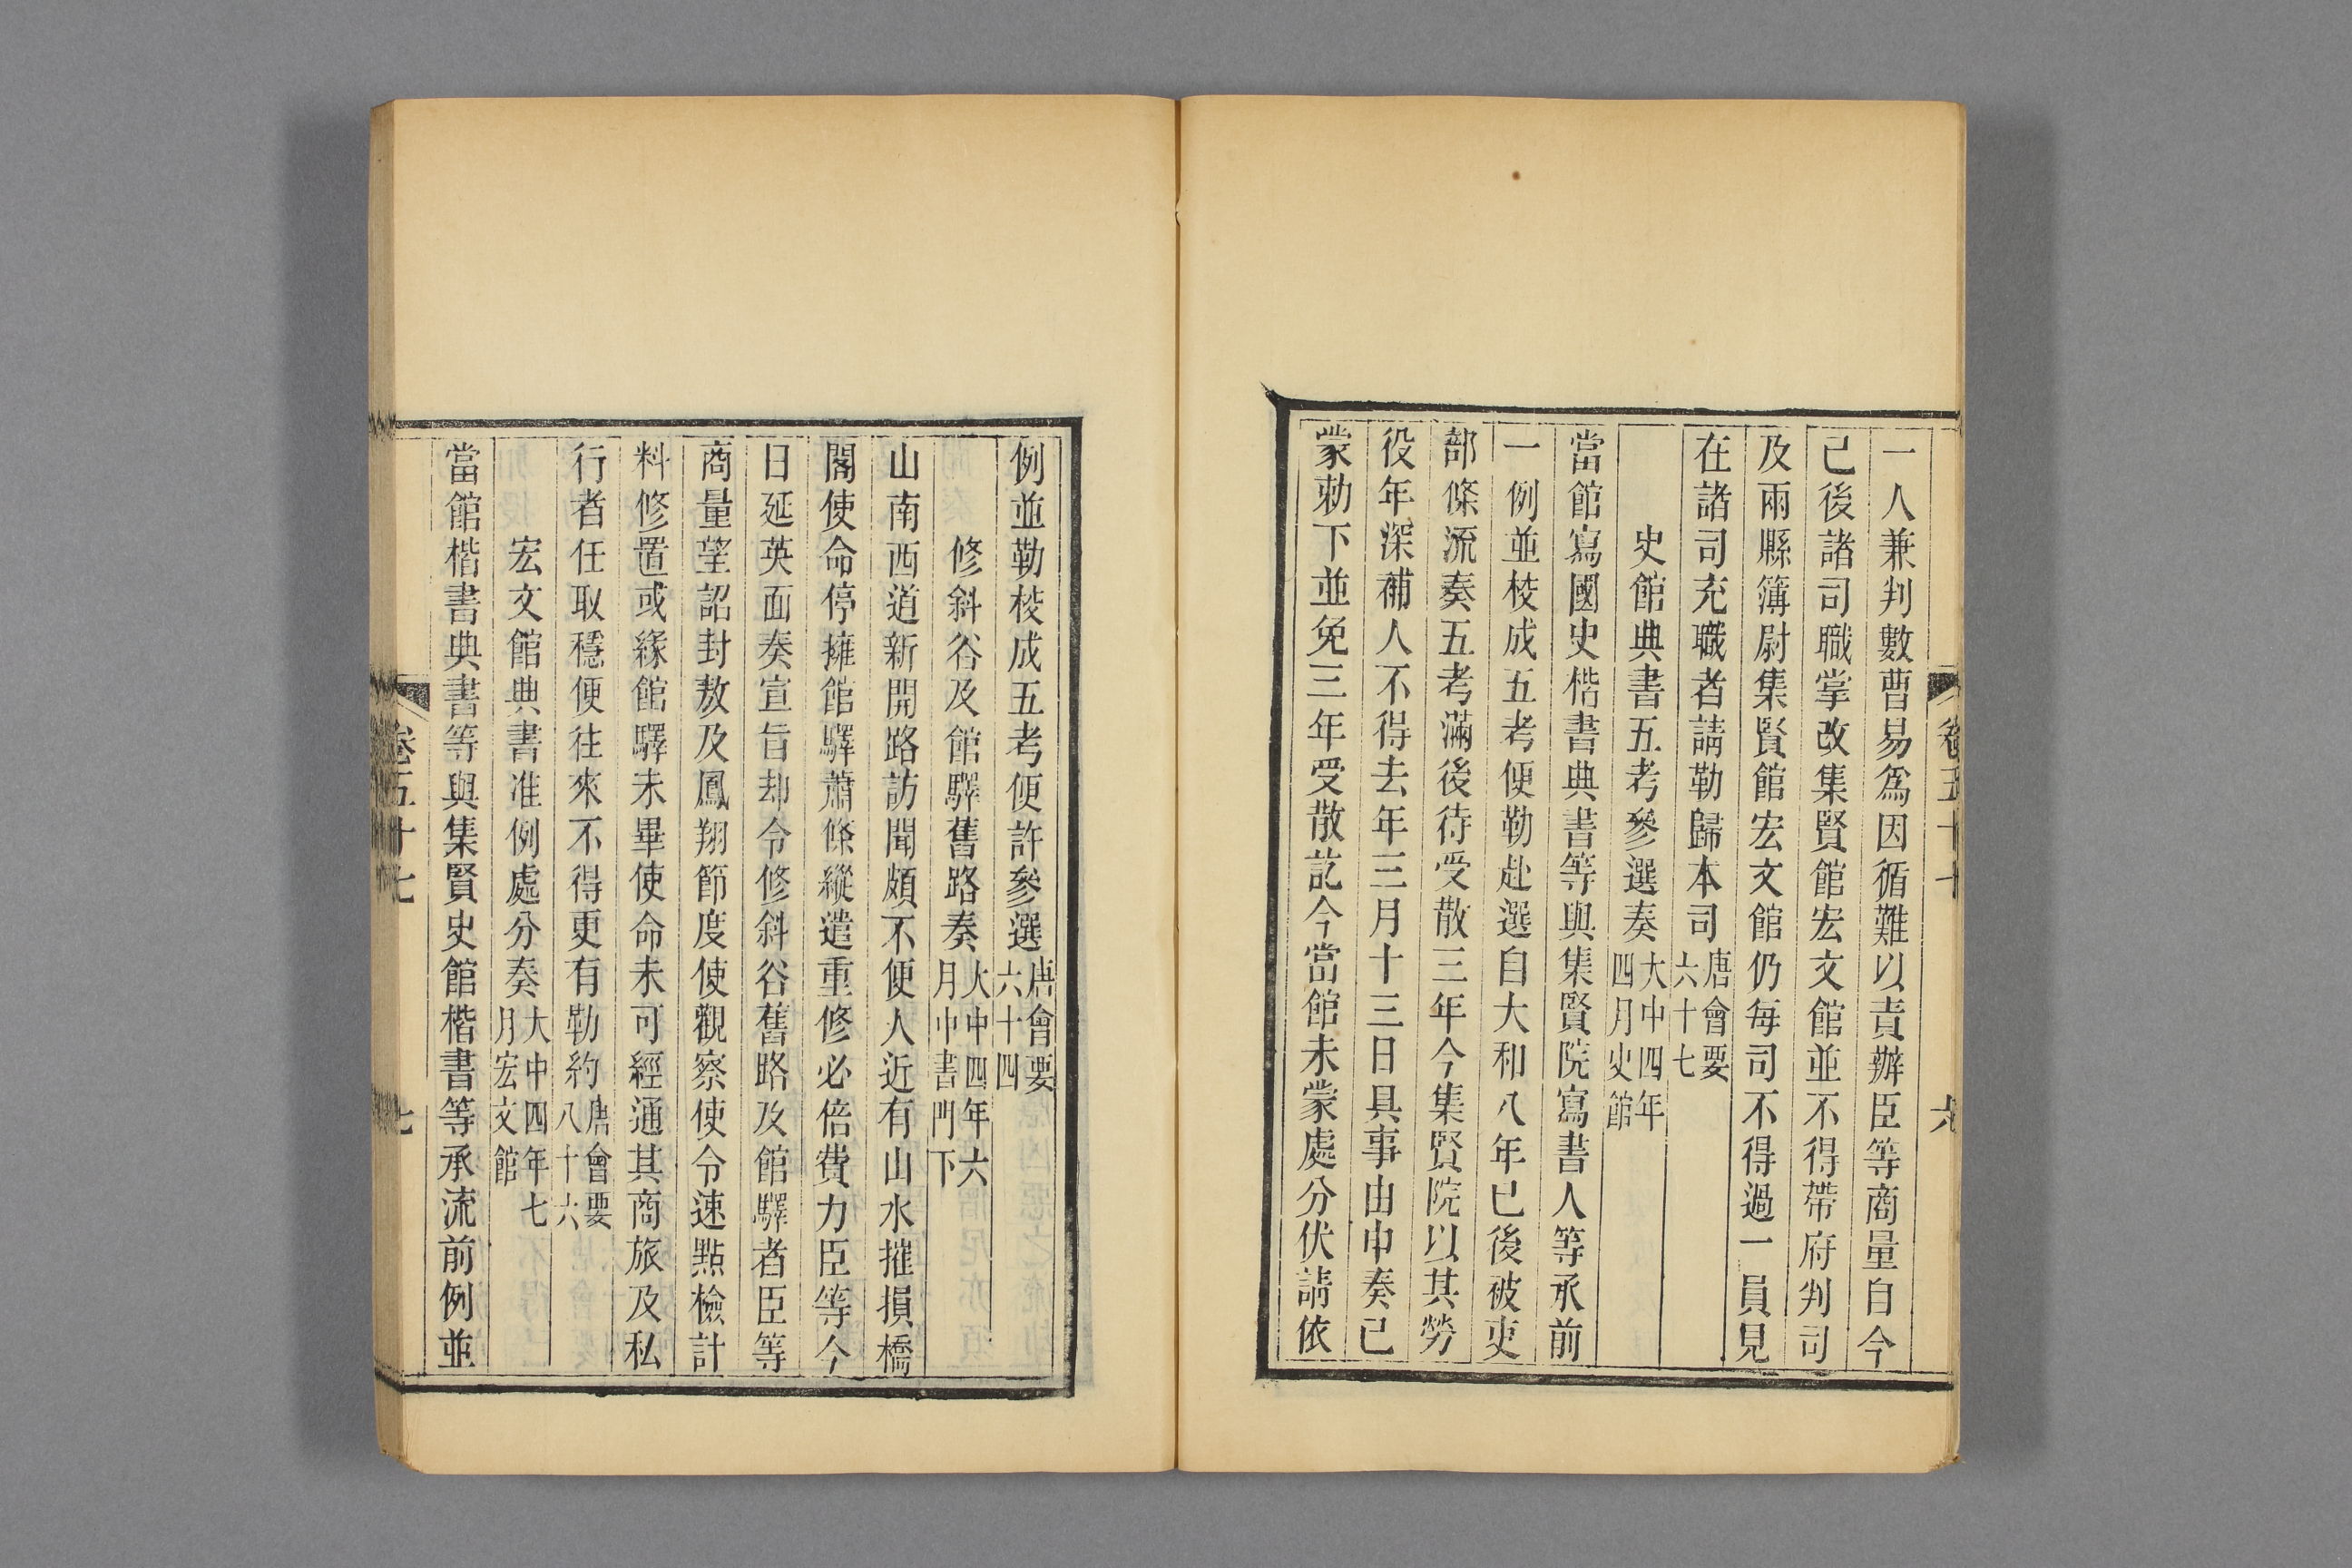 卷五十七
六
一人兼判數曹易爲因循難以責辦臣等商量自今
已後諸司職掌改集賢館宏文館並不得帶府判司
及兩縣簿尉集賢館宏文館仍每司不得過一員見
在諸司充職者請勒歸本司唐會要六十七
史館典書五考參選奏大中四年四月史館
當館寫國史楷書典書等與集賢院寫書人等承前
一例並校成五考便勒赴選自大和八年已後被吏
部條流奏五考滿後待受散三年今集賢院以其勞
役年深補人不得去年三月十三日具事由申奏已
蒙勅下並免三年受散訖今當館未蒙處分伏請依
例並勒校成五考便許參選唐會要六十四
修斜谷及館驛舊路奏大中四年六月中書門下
山南西道新開路訪聞頗不便人近有山水摧損橋
閣使命停擁館驛蕭條縱遣重修必倍費力臣等今
日延英面奏宣旨却令修斜谷舊路及館驛者臣等
商量望詔封敖及鳳翔節度使觀察使令速點檢計
料修置或緣館驛未畢使命未可經通其商旅及私
行者任取穩便往來不得更有勒約唐會要八十六
宏文館典書准例處分奏大中四年七月宏文館
當館楷書典書等與集賢史館楷書等承流前例並
卷五十七
七